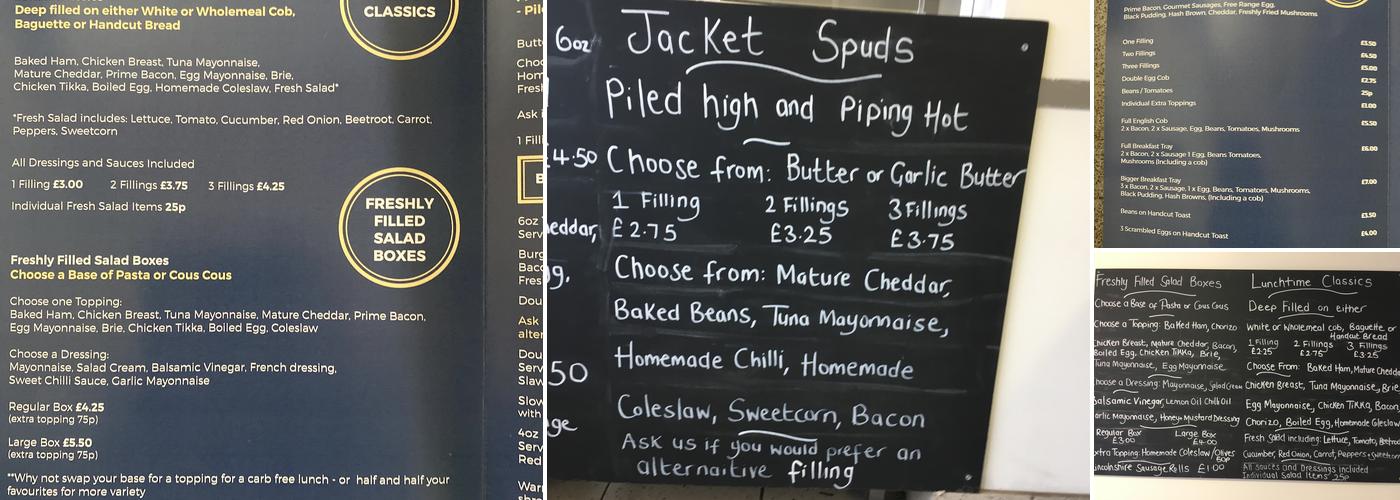 Deep filled on either White or Wholemeal Cob,
Baguette or Handcut Bread
CLASSICS
Baked Ham, Chicken Breast, Tuna Mayonnaise,
Mature Cheddar, Prime Bacon, Egg Mayonnaise, Brie,
Chicken Tikka, Boiled Egg, Homemade Coleslaw, Fresh Salad*
*Fresh Salad includes: Lettuce, Tomato, Cucumber, Red Onion, Beetroot, Carrot,
Peppers, Sweetcorn
All Dressings and Sauces Included
1 Filling £3.00 2 Fillings £3.75 3 Fillings £4.25
Individual Fresh Salad Items 25p
FRESHLY
FILLED
SALAD
BOXES
Freshly Filled Salad Boxes
Choose a Base of Pasta or Cous Cous
Choose one Topping:
Baked Ham, Chicken Breast, Tuna Mayonnaise, Mature Cheddar, Prime Bacon,
Egg Mayonnaise, Brie, Chicken Tikka, Boiled Egg, Coleslaw
Choose a Dressing:
Mayonnaise, Salad Cream, Balsamic Vinegar, French dressing,
Sweet Chilli Sauce, Garlic Mayonnaise
Regular Box £4.25
(extra topping 75p)
Large Box £5.50
(extra topping 75p)
**Why not swap your base for a topping for a carb free lunch - or half and half your
favourites for more variety
6oz
4.50
eddar,
g,
50
ge
Jacket Spuds
Piled high and Piping Hot
Choose from: Butter or Garlic Butter
1 Filling 2 Fillings 3 Fillings
£2.75 £3.25 £3.75
Choose from: Mature Cheddar,
Baked Beans, Tuna Mayonnaise,
Homemade Chilli, Homemade
Coleslaw, Sweetcorn, Bacon
Ask us if you would prefer an
alternaitive filling
Prime Bacon, Gourmet Sausages, Free Range Egg,
Black Pudding, Hash Brown, Cheddar, Freshly Fried Mushrooms
One Filling £3.50
Two Fillings £4.50
Three Fillings £5.00
Double Egg Cob £2.75
Beans / Tomatoes 25p
Individual Extra Toppings £1.00
Full English Cob £5.50
2 x Bacon, 2 x Sausage, Egg, Beans, Tomatoes, Mushrooms
Full Breakfast Tray £6.00
2 x Bacon, 2 x Sausage 1 Egg, Beans, Tomatoes,
Mushrooms (Including a cob)
Bigger Breakfast Tray £7.00
3 x Bacon, 2 x Sausage, 1 x Egg, Beans, Tomatoes, Mushrooms,
Black Pudding, Hash Browns, (Including a cob)
Beans on Handcut Toast £3.50
3 Scrambled Eggs on Handcut Toast £4.00
Freshly Filled Salad Boxes
Choose a Base of Pasta or Cous Cous
Choose a Topping: Baked Ham, Chorizo
Chicken Breast, Mature Cheddar, Bacon,
Boiled Egg, Chicken Tikka, Brie,
Tuna Mayonnaise, Egg Mayonnaise
Choose a Dressing: Mayonnaise, Salad Cream
Balsamic Vinegar, Lemon Oil Chilli Oil
Garlic Mayonnaise, Honey + Mustard Dressing
Regular Box Large Box
£3.00 £4.00
Extra Topping: Homemade Coleslaw/Olives
50p
Lincolnshire Sausage Rolls £1.00
Lunchtime Classics
Deep Filled on either
White or Wholemeal cob, Baguette or
Handcut Bread
1 Filling 2 Fillings 3 Fillings
£2.25 £2.75 £3.25
Choose From: Baked Ham, Mature Chedda
Chicken Breast, Tuna Mayonnaise, Brie
Egg Mayonnaise, Chicken Tikka, Bacon
Chorizo, Boiled Egg, Homemade Coleslaw
Fresh Salad including: Lettuce, Tomato,
Cucumber, Red Onion, Carrot, Peppers + Sweetcorn
All Sauces and Dressings included
Individual Salad Items 25p